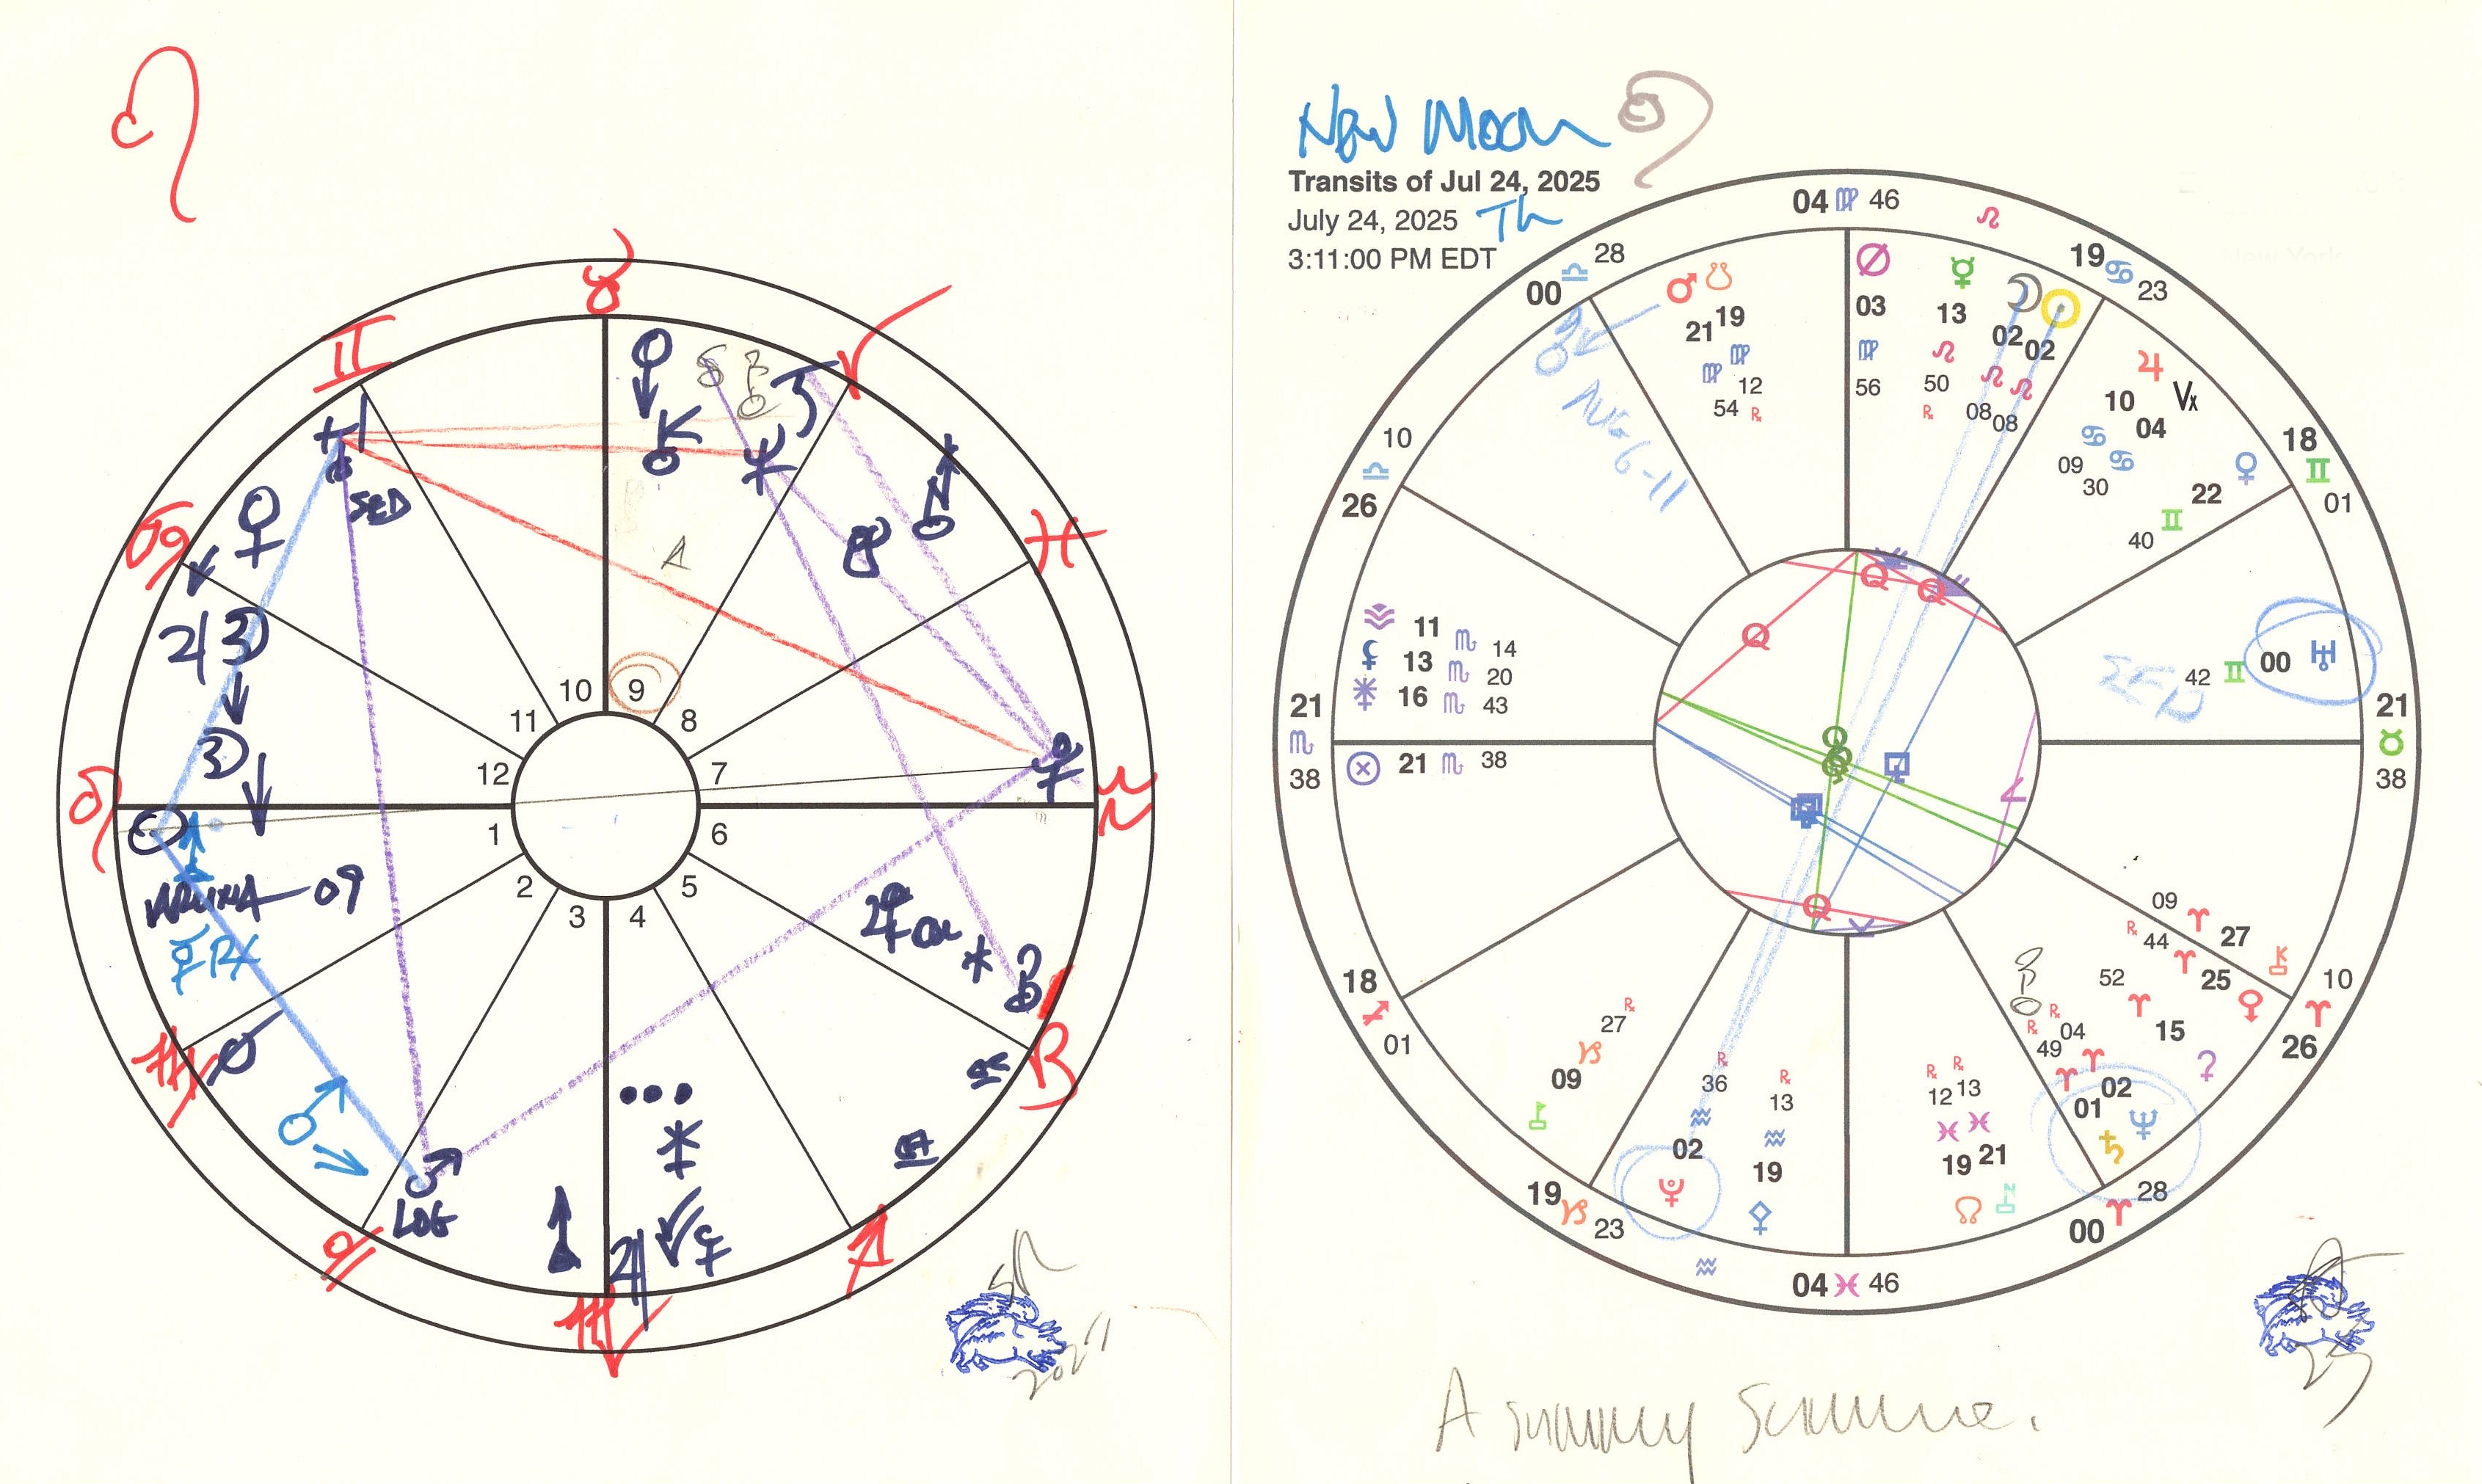 SED
A
10
9
11
8
12
7
1
6
2
5
3
4
VARUNA-09
Rx
LOG
2025
New Moon
Transits of Jul 24, 2025
July 24, 2025 Th
3:11:00 PM EDT
04 ♍ 46
♌
19 ♋ 23
18 ♊ 01
21 ♉ 38
10 ♈ 26
28 ♈ 00
04 ♓ 46
♒
19 ♑ 23
18 ♐ 01
21 ♏ 38
10 ♎ 26
00 ♎ 28
♂ 21 ♍ 54
☋ 19 ♍ 12 ℞
03 ♍ 56
☿ 13 ♌ 50 ℞
☽ 02 ♌ 08
☉ 02 ♌ 08
♃ 10 ♋ 09
Vx 04 ♋ 30
♀ 22 ♊ 40
♅ 00 ♊ 42
SED
AUG 6-11
11 ♏ 14
⚸ 13 ♏ 20
16 ♏ 43
⊗ 21 ♏ 38
09 ♑ 27 ℞
02 ♒ 36 ℞
⚴ 19 ♒ 13 ℞
☊ 19 ♓ 12 ℞
21 ♓ 13 ℞
♄ 01 ♈ 49 ℞
♆ 02 ♈ 04 ℞
⚳ 15 ♈ 52
25 ♈ 44 ℞
⚷ 27 ♈ 09
Q
Q
Q
Q
Q
25
A summy